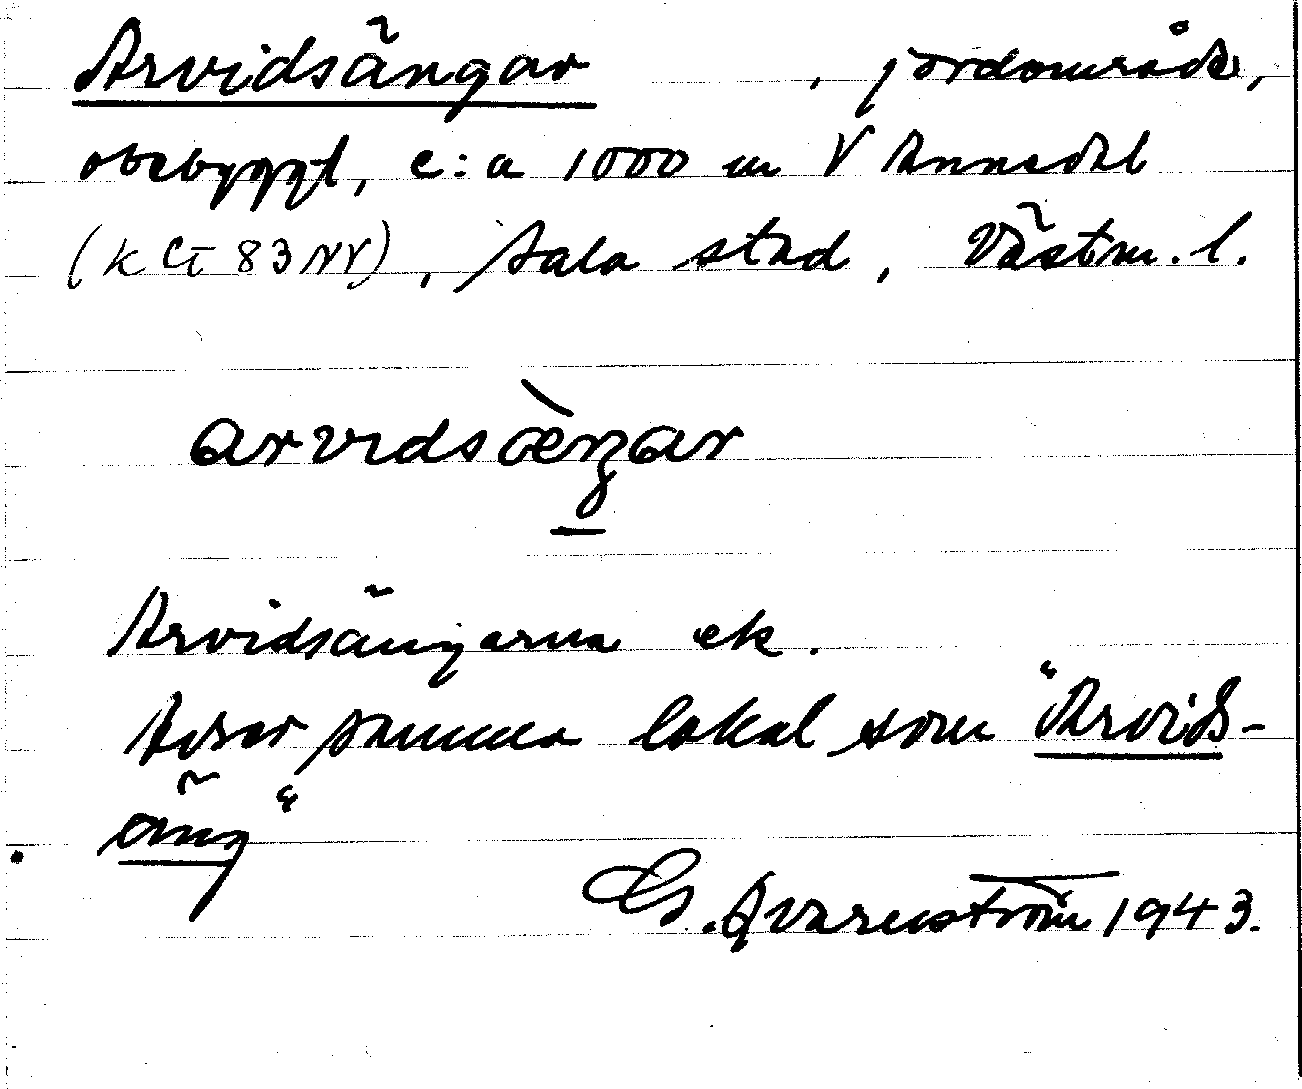 Arvidsängar , jordområde,
obebyggt, c:a 1000 m V Annedal
(k CI 83 NV), Sala stad, Västm. l.
arvidsæ̀ŋar
Arvidsängarna ek.
Avser samma lokal som "Arvids-
äng"
G. Qvarnström 1943.